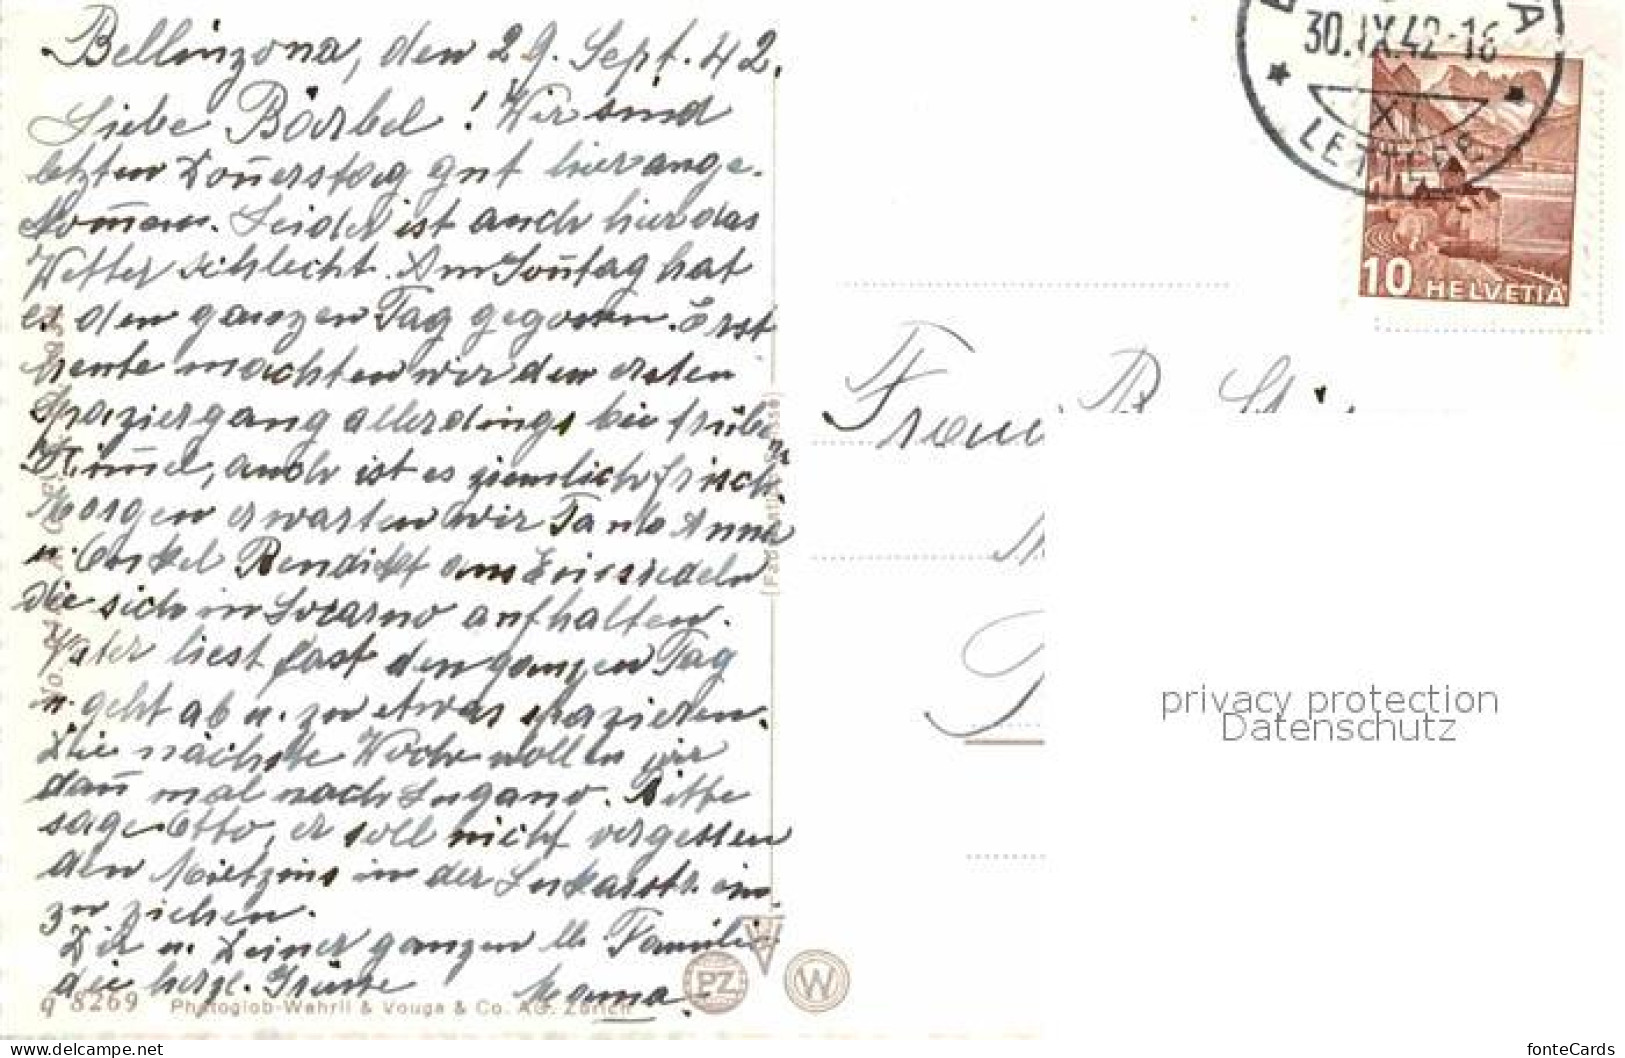 Bellinzona, den 29. Sept. 42.
Liebe Bärbel! Wir sind
letzten Don̄erstag gut hier ange-
kom̄en. Leider ist auch hier das
Wetter schlecht. Am Son̄tag hat
es den ganzen Tag gegossen. Erst
heute machten wir den ersten
Spaziergang allerdings bei trüben
Him̄el, auch ist es ziemlich frisch.
Morgen erwarten wir Tante Anna
u. Onkel Bendikt aus Einsiedeln
die sich in Locarno aufhalten.
Vater liest fast den ganzen Tag
u. geht ab u. zu etwas spazieren.
Die nächste Woche wollen wir
dan̄ mal nach Lugano. Bitte
sage Otto, er soll nicht vergessen
den Mietzins in der Lukasstr. ein
zu ziehen.
Dir u. Deiner ganzen lb. Familie
die herzl. Grüsse Mama.
q 8269 Photoglob-Wehrli & Vouga & Co. AG. Zürich
PZ W
30.IX.42-16
XI
10 HELVETIA
Frau B.
privacy protection
Datenschutz
www.delcampe.net
fonteCards